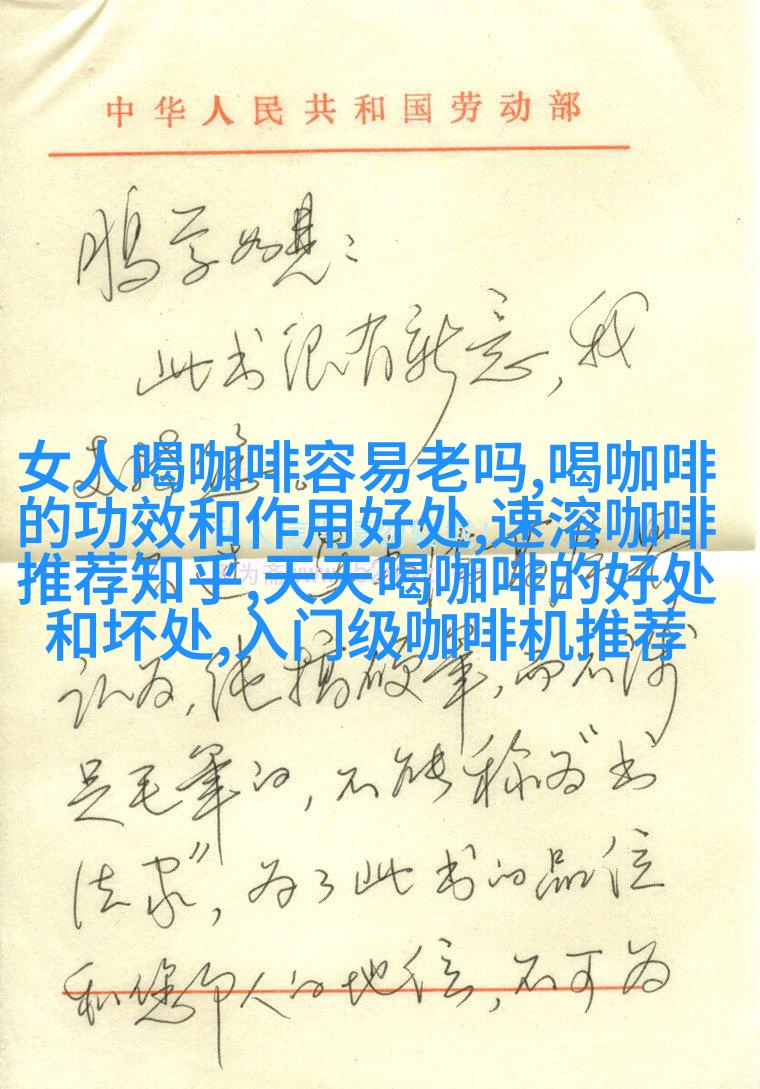 中华人民共和国劳动部
鹏学如晤：
此书很有新意，我
女人喝咖啡容易老吗,喝咖啡
的功效和作用好处,速溶咖啡
推荐知乎,天天喝咖啡的好处
和坏处,入门级咖啡机推荐
认为，纯搞硬笔，而不涉
足毛笔的，不能称为"书
法家"，为了此书的品位
和您个人的地位，不可为